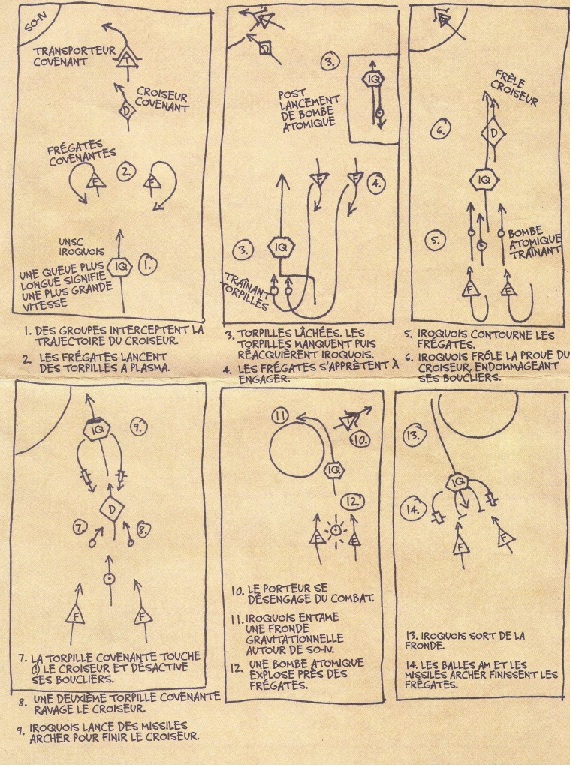 SO-N
TRANSPORTEUR
COVENANT
T
CROISEUR
COVENANT
D
FRÉGATES
COVENANTES
2.
F
F
UNSC
IROQUOIS
IQ
1.
UNE QUEUE PLUS
LONGUE SIGNIFIE
UNE PLUS GRANDE
VITESSE
1. DES GROUPES INTERCEPTENT LA
TRAJECTOIRE DU CROISEUR.
2. LES FRÉGATES LANCENT
DES TORPILLES A PLASMA.
D
3.
IQ
POST
LANCEMENT
DE BOMBE
ATOMIQUE
F
F
4.
3.
IQ
TRAÎNANT
TORPILLES
3. TORPILLES LÂCHÉES. LES
TORPILLES MANQUENT PUIS
RÉACQUIÈRENT IROQUOIS.
4. LES FRÉGATES S'APPRÊTENT À
ENGAGER.
FRÊLE
CROISEUR
6.
D
IQ
5.
BOMBE
ATOMIQUE
TRAÎNANT
F
F
5. IROQUOIS CONTOURNE LES
FRÉGATES.
6. IROQUOIS FRÔLE LA PROUE DU
CROISEUR, ENDOMMAGEANT
SES BOUCLIERS.
IQ
9.
D
7.
8.
F
F
7. LA TORPILLE COVENANTE TOUCHE
LE CROISEUR ET DÉSACTIVE
SES BOUCLIERS.
8. UNE DEUXIÈME TORPILLE COVENANTE
RAVAGE LE CROISEUR.
9. IROQUOIS LANCE DES MISSILES
ARCHER POUR FINIR LE CROISEUR.
11
10.
IQ
12.
F
F
10. LE PORTEUR SE
DÉSENGAGE DU COMBAT.
11. IROQUOIS ENTAME
UNE FRONDE
GRAVITATIONNELLE
AUTOUR DE SO-N.
12. UNE BOMBE ATOMIQUE
EXPLOSE PRÈS DES
FRÉGATES.
13.
IQ
14.
F
F
13. IROQUOIS SORT DE LA
FRONDE.
14. LES BALLES AM ET LES
MISSILES ARCHER FINISSENT LES
FRÉGATES.